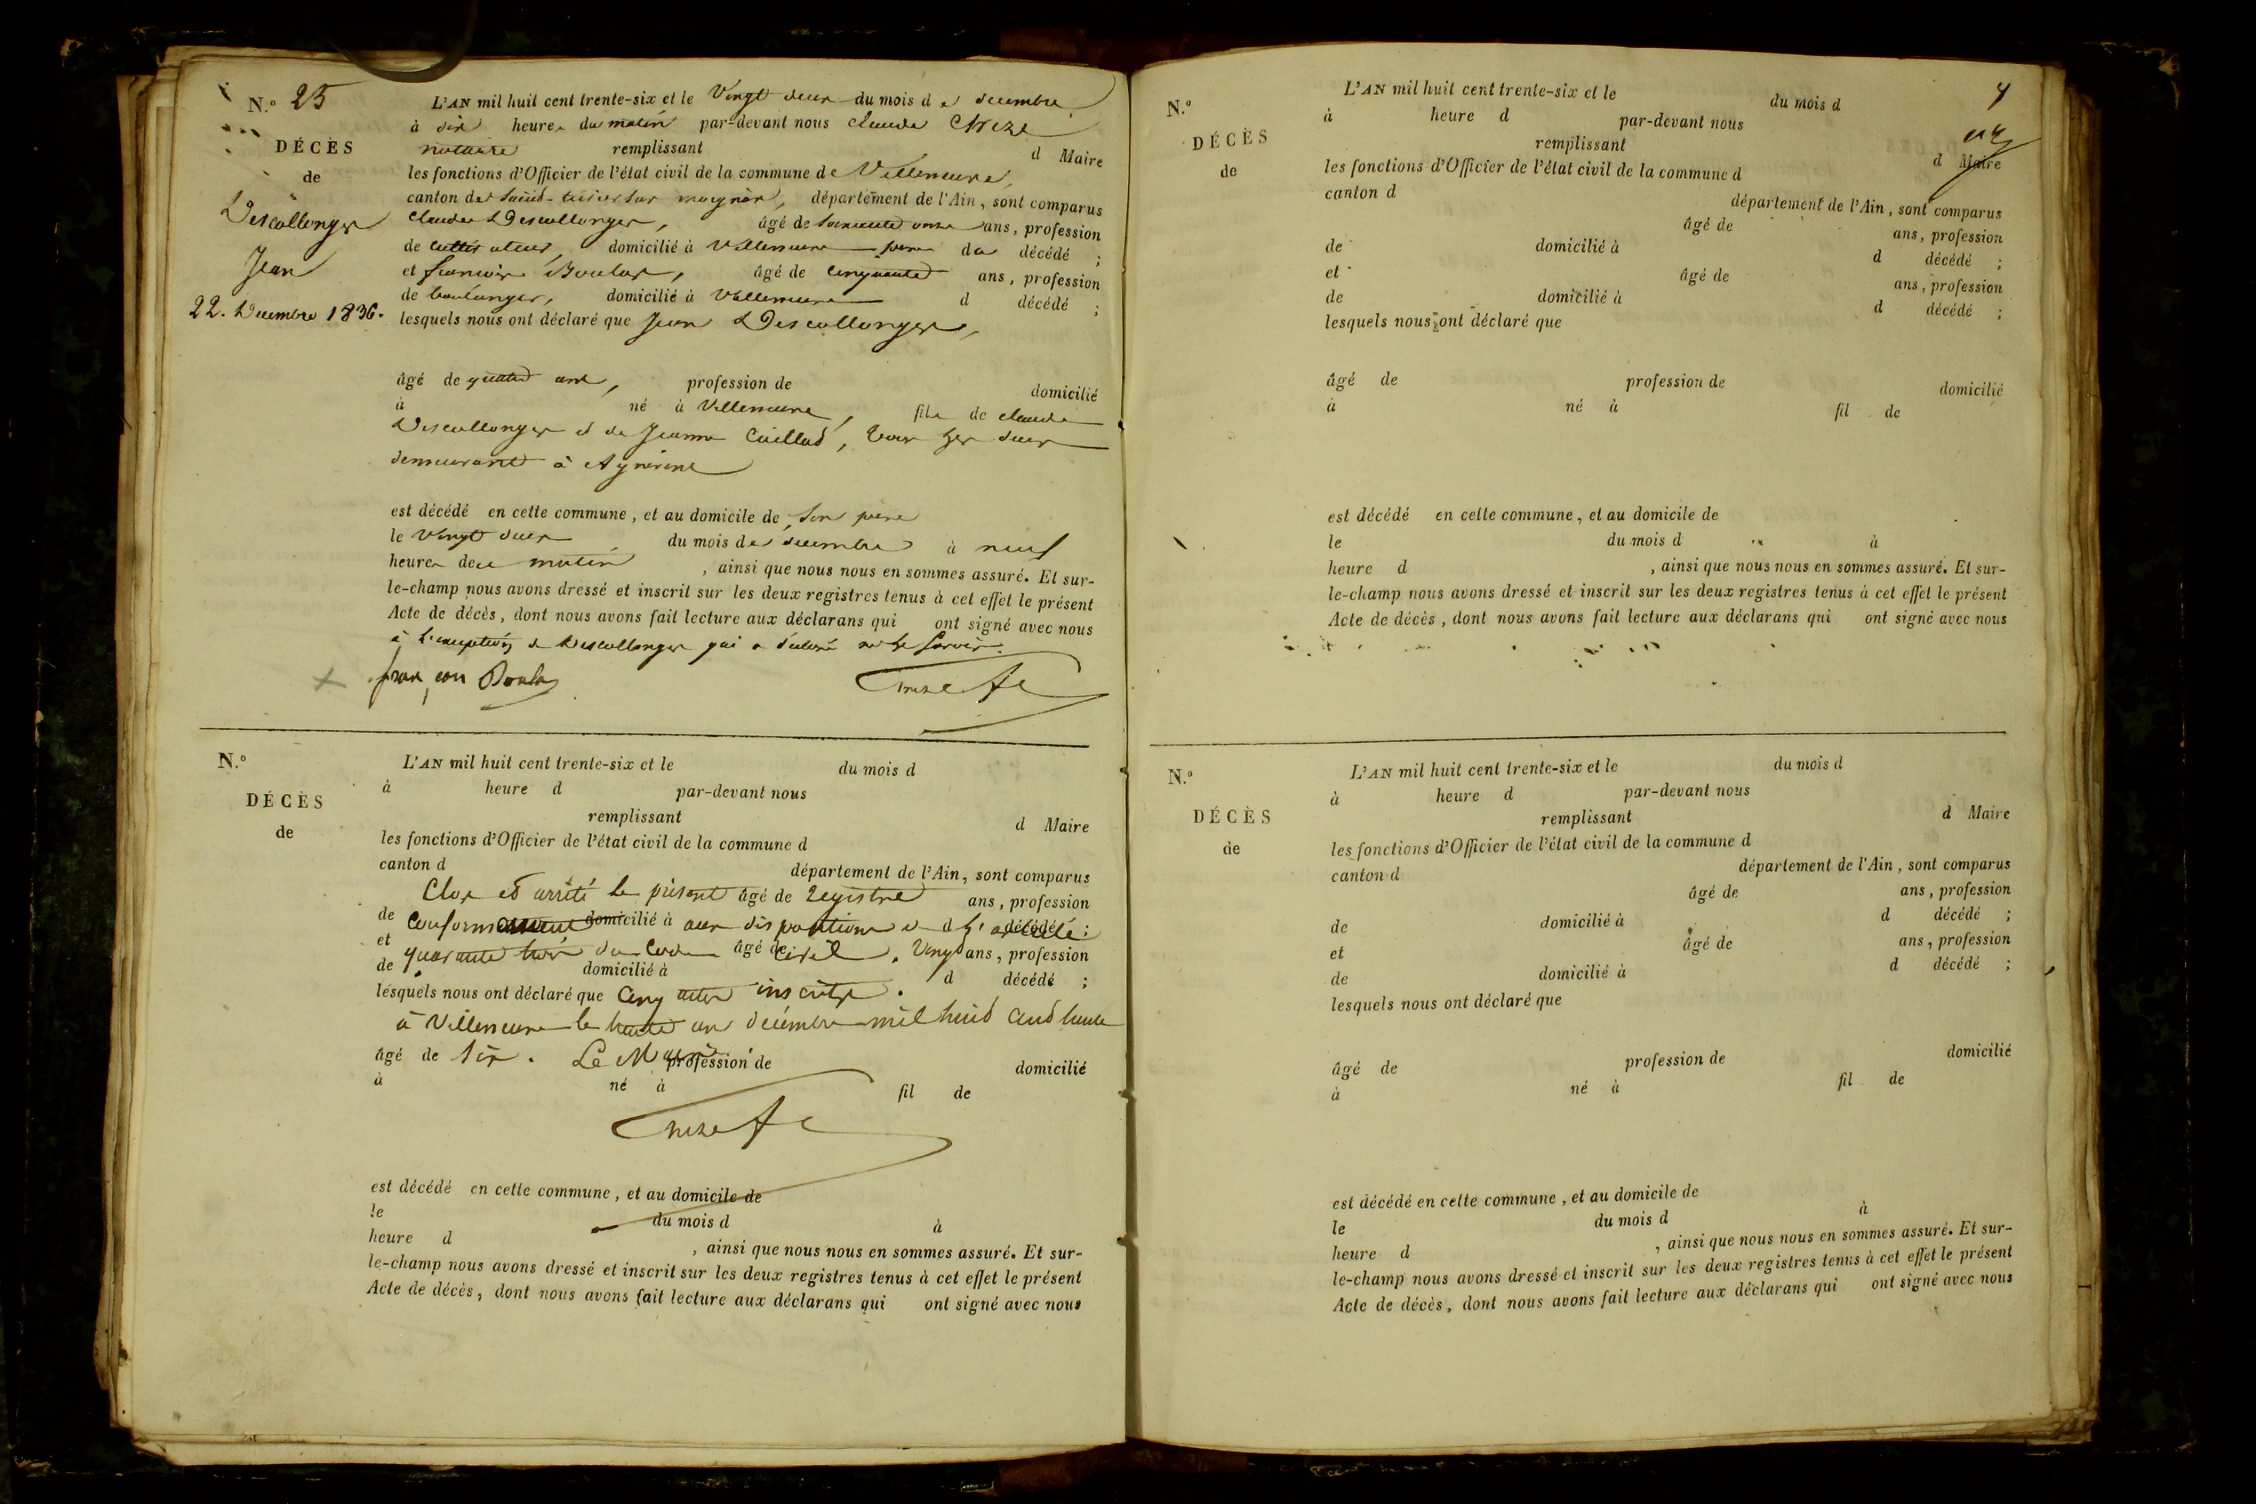 N.° 25
DÉCÈS
de
Descollonges
Jean
22. Décembre 1836.
L'AN mil huit cent trente-six et le Vingt deux du mois de décembre
à dix heures du matin par-devant nous claude Chize
notaire remplissant d Maire
les fonctions d'Officier de l'état civil de la commune de Villeneuve,
canton de Saint-trivier sur moignans, département de l'Ain, sont comparus
claude Descollonges, âgé de soixante onze ans, profession
de cultivateur, domicilié à Villeneuve père du décédé ;
et françois Boulas, âgé de cinquante ans, profession
de boulanger, domicilié à Villeneuve d décédé ;
lesquels nous ont déclaré que Jean Descollonges,
âgé de quatre ans, profession de domicilié
à né à Villeneuve, fils de claude
Descollonges et de Jeanne Caillad, tous les deux
demeurant à Agnereins
est décédé en cette commune, et au domicile de son père
le Vingt deux du mois de décembre à neuf
heures de matin, ainsi que nous nous en sommes assuré. Et sur-
le-champ nous avons dressé et inscrit sur les deux registres tenus à cet effet le présent
Acte de décès, dont nous avons fait lecture aux déclarans qui ont signé avec nous
à l'exception de Descollonges qui a déclaré ne le savoir.
françois Boulas
N.°
DÉCÈS
de
L'AN mil huit cent trente-six et le du mois d
à heure d par-devant nous
remplissant d Maire
les fonctions d'Officier de l'état civil de la commune d
canton d département de l'Ain, sont comparus
Clos et arrêté le présent âgé de registre ans, profession
de conformément domicilié à aux dispositions d de l'article décédé ;
et quarante trois du Code âgé de civil. Vingt ans, profession
de domicilié à d décédé ;
lesquels nous ont déclaré que Cinq actes inscrits.
à Villeneuve le trente un décembre mil huit cent trente
âgé de six. Le Maire profession de domicilié
à né à fil de
est décédé en cette commune, et au domicile de
le du mois d à
heure d , ainsi que nous nous en sommes assuré. Et sur-
le-champ nous avons dressé et inscrit sur les deux registres tenus à cet effet le présent
Acte de décès, dont nous avons fait lecture aux déclarans qui ont signé avec nous
N.°
DÉCÈS
de
L'AN mil huit cent trente-six et le du mois d
à heure d par-devant nous
remplissant d Maire
les fonctions d'Officier de l'état civil de la commune d
canton d département de l'Ain, sont comparus
âgé de ans, profession
de domicilié à d décédé ;
et âgé de ans, profession
de domicilié à d décédé ;
lesquels nous ont déclaré que
âgé de profession de domicilié
à né à fil de
est décédé en cette commune, et au domicile de
le du mois d à
heure d , ainsi que nous nous en sommes assuré. Et sur-
le-champ nous avons dressé et inscrit sur les deux registres tenus à cet effet le présent
Acte de décès, dont nous avons fait lecture aux déclarans qui ont signé avec nous
N.°
DÉCÈS
de
L'AN mil huit cent trente-six et le du mois d
à heure d par-devant nous
remplissant d Maire
les fonctions d'Officier de l'état civil de la commune d
canton d département de l'Ain, sont comparus
âgé de ans, profession
de domicilié à d décédé ;
et âgé de ans, profession
de domicilié à d décédé ;
lesquels nous ont déclaré que
âgé de profession de domicilié
à né à fil de
est décédé en cette commune, et au domicile de
le du mois d à
heure d , ainsi que nous nous en sommes assuré. Et sur-
le-champ nous avons dressé et inscrit sur les deux registres tenus à cet effet le présent
Acte de décès, dont nous avons fait lecture aux déclarans qui ont signé avec nous